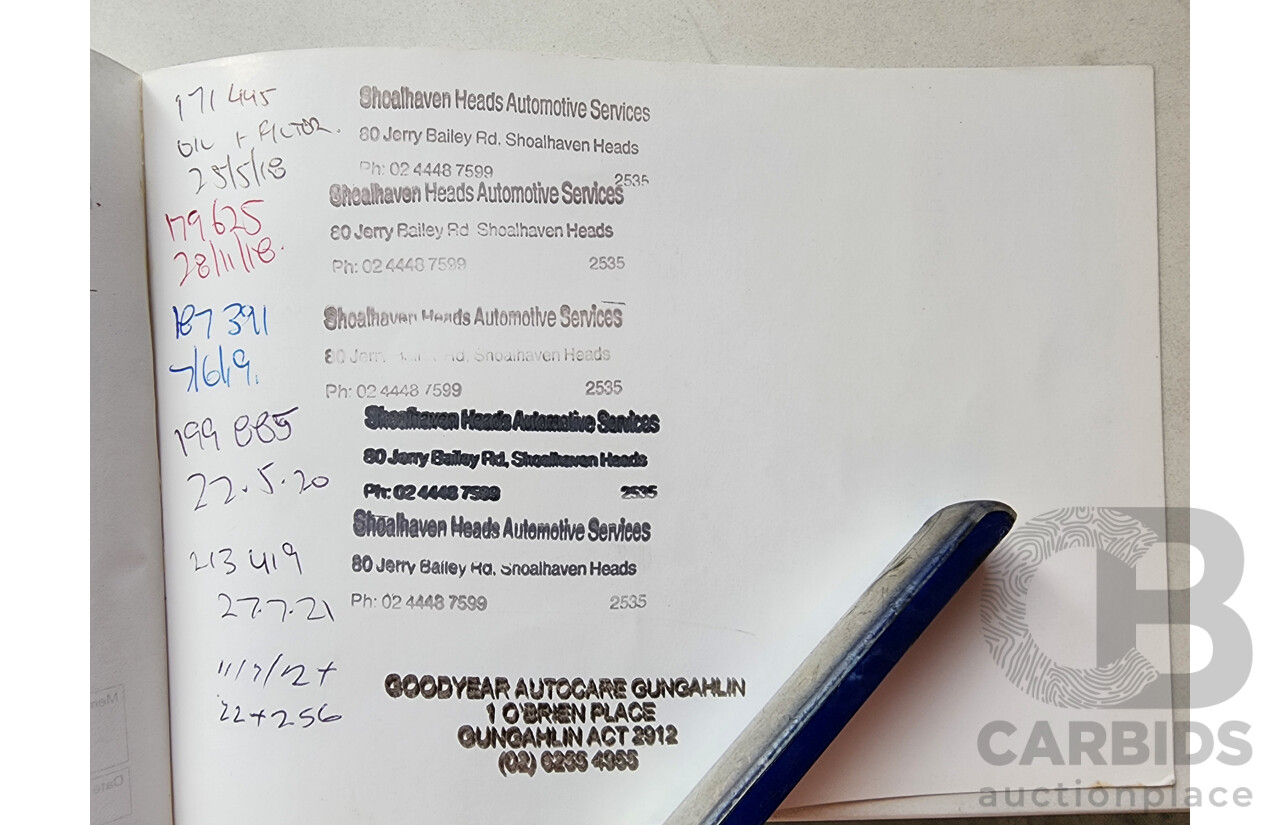 171 445
OIL + FILTER.
25/5/18
Shoalhaven Heads Automotive Services
80 Jerry Bailey Rd. Shoalhaven Heads
Ph: 02 4448 7599
2535
179625
28/11/18.
Shoalhaven Heads Automotive Services
80 Jerry Bailey Rd Shoalhaven Heads
Ph: 02 4448 7599 2535
187 391
7/6/19.
Shoalhaven Heads Automotive Services
80 Jerry Rd, Shoalhaven Heads
Ph: 02 4448 7599 2535
199 885
22.5.20
Shoalhaven Heads Automotive Services
80 Jerry Bailey Rd, Shoalhaven Heads
Ph: 02 4448 7599 2535
213 419
27.7.21
Shoalhaven Heads Automotive Services
80 Jerry Bailey Rd, Shoalhaven Heads
Ph: 02 4448 7599 2535
GOODYEAR AUTOCARE GUNGAHLIN
1 O'BRIEN PLACE
GUNGAHLIN ACT 2912
(02) 6255 4955
CB
CARBIDS
auctionplace